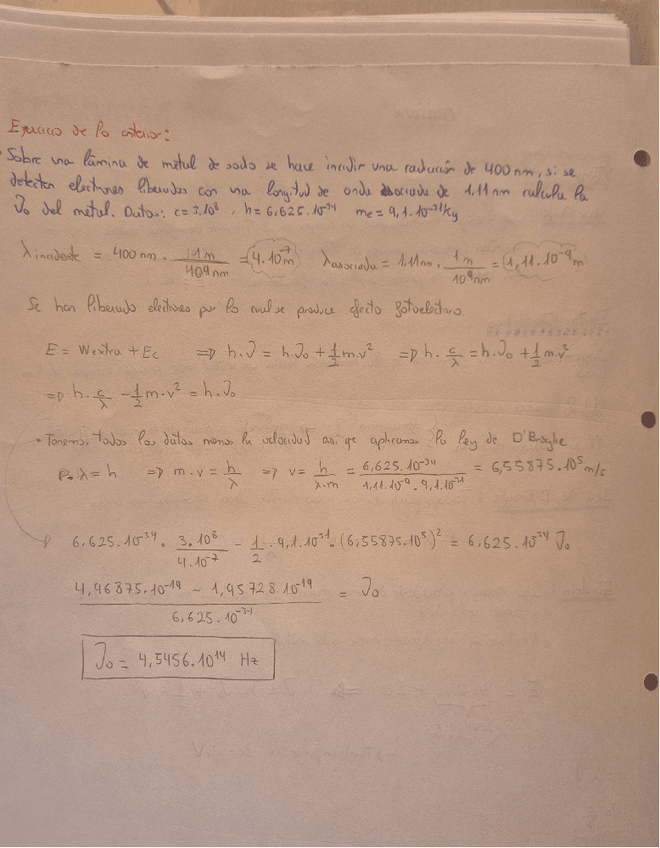 Ejercicio de lo anterior:
Sobre una lámina de metal de sodio se hace incidir una radiación de 400 nm, si se
detectan electrones liberados con una longitud de onda asociada de 1,11 nm calcula la
ν₀ del metal. Datos: c=3.10⁸, h=6,625.10⁻³⁴ me=9,1.10⁻³¹kg
λincidente = 400 nm . 1m/10⁹nm = 4.10⁻⁷m λasociada = 1,11nm . 1m/10⁹nm = 1,11.10⁻⁹m
Se han liberado electrones por lo cual se produce efecto fotoeléctrico.
E = Wextra + Ec => h.ν = h.ν₀ + 1/2 m.v² => h. c/λ = h.ν₀ + 1/2 m.v²
=> h. c/λ - 1/2 m.v² = h.ν₀
• Tenemos todos los datos menos la velocidad así que aplicamos la ley de D'Broglie
p.λ = h => m.v = h/λ => v = h/λ.m = 6,625.10⁻³⁴/1,11.10⁻⁹.9,1.10⁻³¹ = 6,55875.10⁵ m/s
6,625.10⁻³⁴ . 3.10⁸/4.10⁻⁷ - 1/2 . 9,1.10⁻³¹.(6,55875.10⁵)² = 6,625.10⁻³⁴ ν₀
4,96875.10⁻¹⁹ - 1,95728.10⁻¹⁹/6,625.10⁻³⁴ = ν₀
ν₀ = 4,5456.10¹⁴ Hz